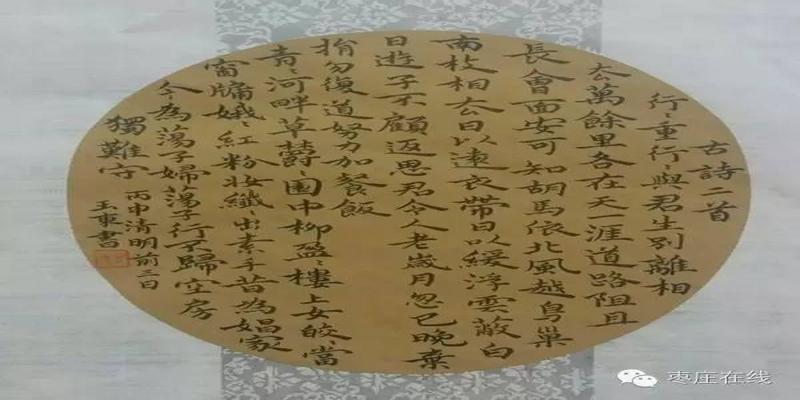 古詩二首
行〻重行〻與君生別離相
去萬餘里各在天一涯道路阻且
長會面安可知胡馬依北風越鳥巢
南枝相去日以遠衣帶日以緩浮雲蔽白
日遊子不顧返思君令人老歲月忽已晚棄
捐勿復道努力加餐飯
青〻河畔草鬱〻園中柳盈〻樓上女皎〻當
窗牖娥〻紅粉妝纖〻出素手昔為娼家
今為蕩子婦蕩子行不歸空房
獨難守
丙申清明前三日
玉東書
枣庄在线